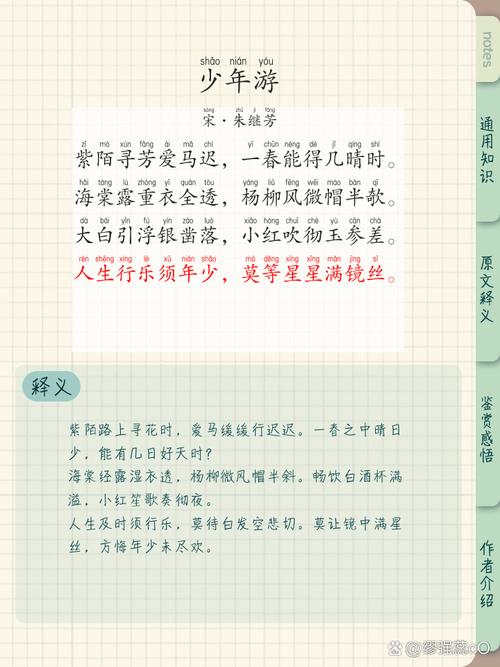 notes
shào nián yóu
少年游
sòng zhū jì fāng
宋·朱继芳
zǐ mò xún fāng ài mǎ chí yī chūn néng dé jǐ qíng shí
紫陌寻芳爱马迟，一春能得几晴时。
hǎi táng lù zhòng yī quán tòu yáng liǔ fēng wēi mào bàn qī
海棠露重衣全透，杨柳风微帽半欹。
dà bái yǐn fú yín záo luò xiǎo hóng chuī chè yù cēn cī
大白引浮银凿落，小红吹彻玉参差。
rén shēng xíng lè xū nián shào mò děng xīng xīng mǎn jìng sī
人生行乐须年少，莫等星星满镜丝。
释义
紫陌路上寻花时，爱马缓缓行迟迟。一春之中晴日
少，能有几日好天时？
海棠经露湿衣透，杨柳微风帽半斜。畅饮白酒杯满
溢，小红笙歌奏彻夜。
人生及时须行乐，莫待白发空悲切。莫让镜中满星
丝，方悔年少未尽欢。
通用知识
原文释义
鉴赏感悟
作者介绍